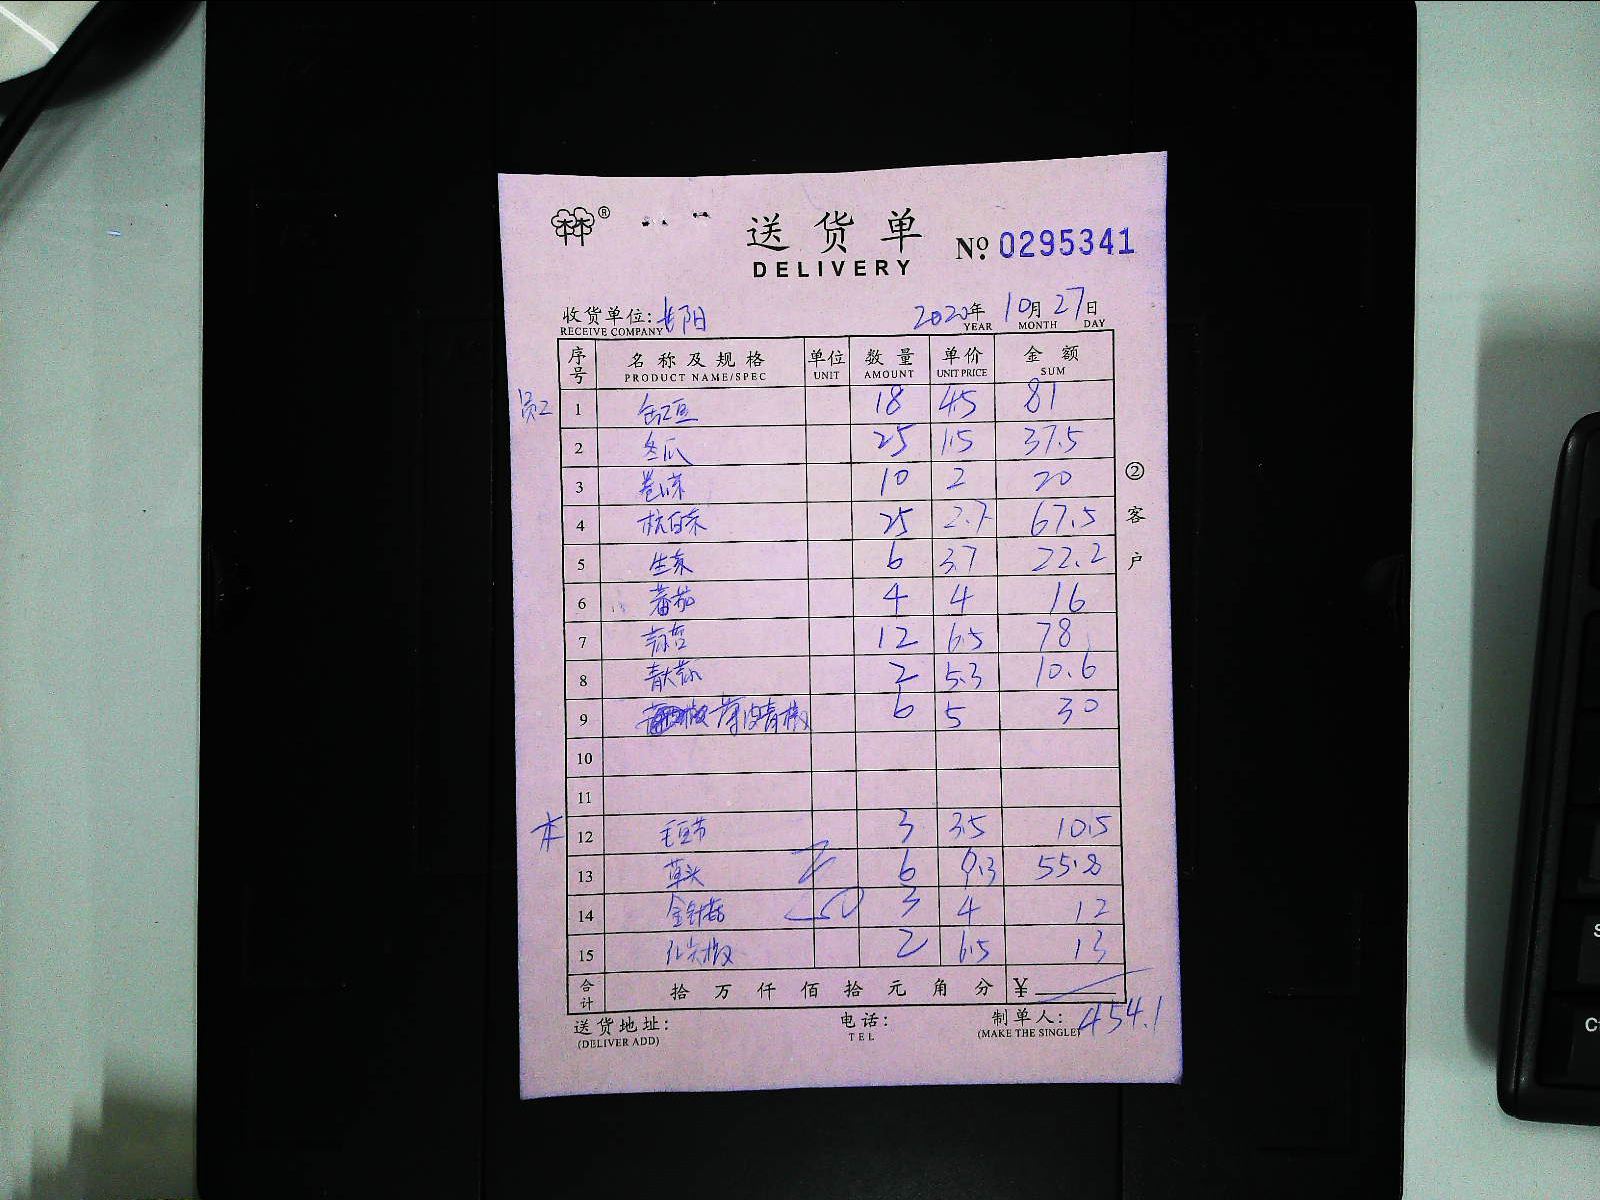 ®
送货单
DELIVERY
№ 0295341
收货单位: 长阳 2020年 10月 27日
RECEIVE COMPANY YEAR MONTH DAY
序号 名称及规格 单位 数量 单价 金额
PRODUCT NAME/SPEC UNIT AMOUNT UNIT PRICE SUM
员工 1 缸豆 18 4.5 81
2 冬瓜 25 1.5 37.5
3 卷心菜 10 2 20
4 杭白菜 25 2.7 67.5
5 生菜 6 3.7 22.2
6 蕃茄 4 4 16
7 12 6.5 78
8 2 5.3 10.6
9 薄皮青椒 6 5 30
10
11
本 12 毛豆节 3 3.5 10.5
13 草头 6 9.3 55.8
14 金针菇 3 4 12
15 红尖椒 2 6.5 13
合计 拾 万 仟 佰 拾 元 角 分 ¥
454.1
送货地址: 电话: 制单人:
(DELIVER ADD) TEL (MAKE THE SINGLE)
② 客户